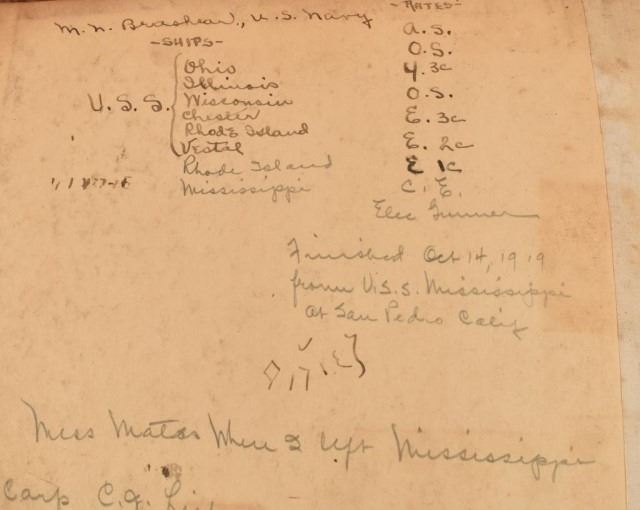 M. N. Brashear, U.S. Navy
-RATES-
-SHIPS-
A.S.
O.S.
Ohio
Y. 3c
Illinois
U.S.S. Wisconsin
O.S.
Chester
E. 3c
Rhode Island
Vestal
E. 2c
Rhode Island
E 1c
Mississippi
C. E.
Elec Gunner
Finished Oct 14, 1919
from U.S.S. Mississippi
at San Pedro Calif
Mess Mates When I left Mississippi
Carp C.J.